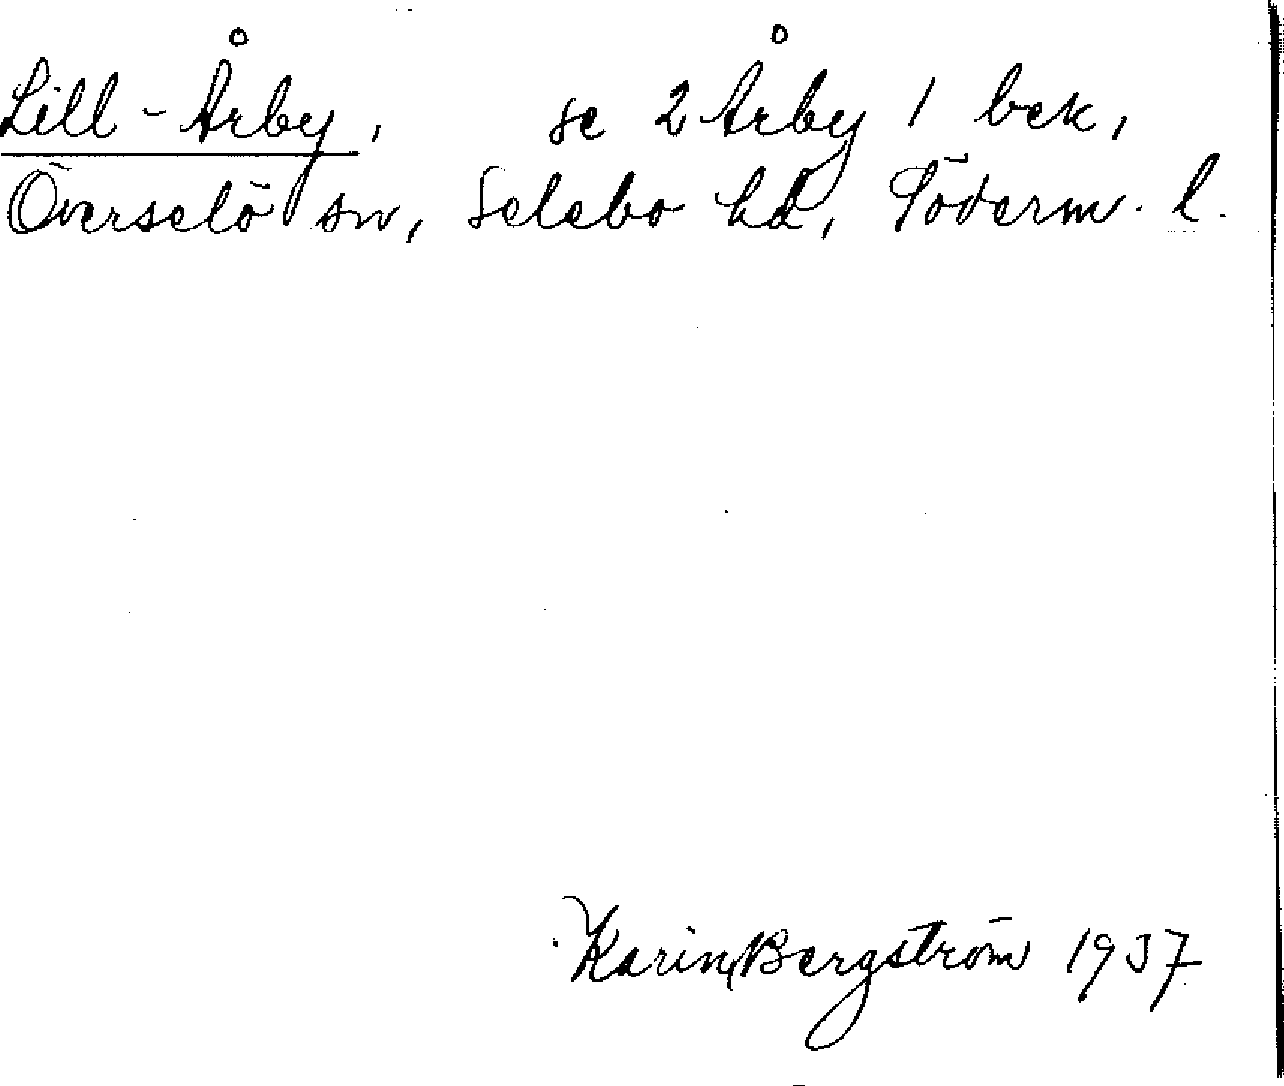 Lill-Årby, se 2 Årby 1 bek,
Överselö sn, Selebo hd, Söderm. l.
Karin Bergström 1937